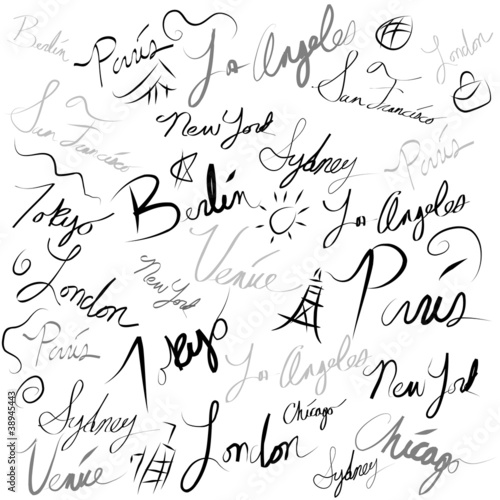 Berlin
París
Los Angeles
London
San Francisco
San Francisco
New York
Sydney
París
Tokyo
Berlin
Los Angeles
Venice
London
New York
París
París
Tokyo
Los Angeles
New York
Sydney
Chicago
London
Chicago
Venice
Sydney
Adobe Stock | #38945443